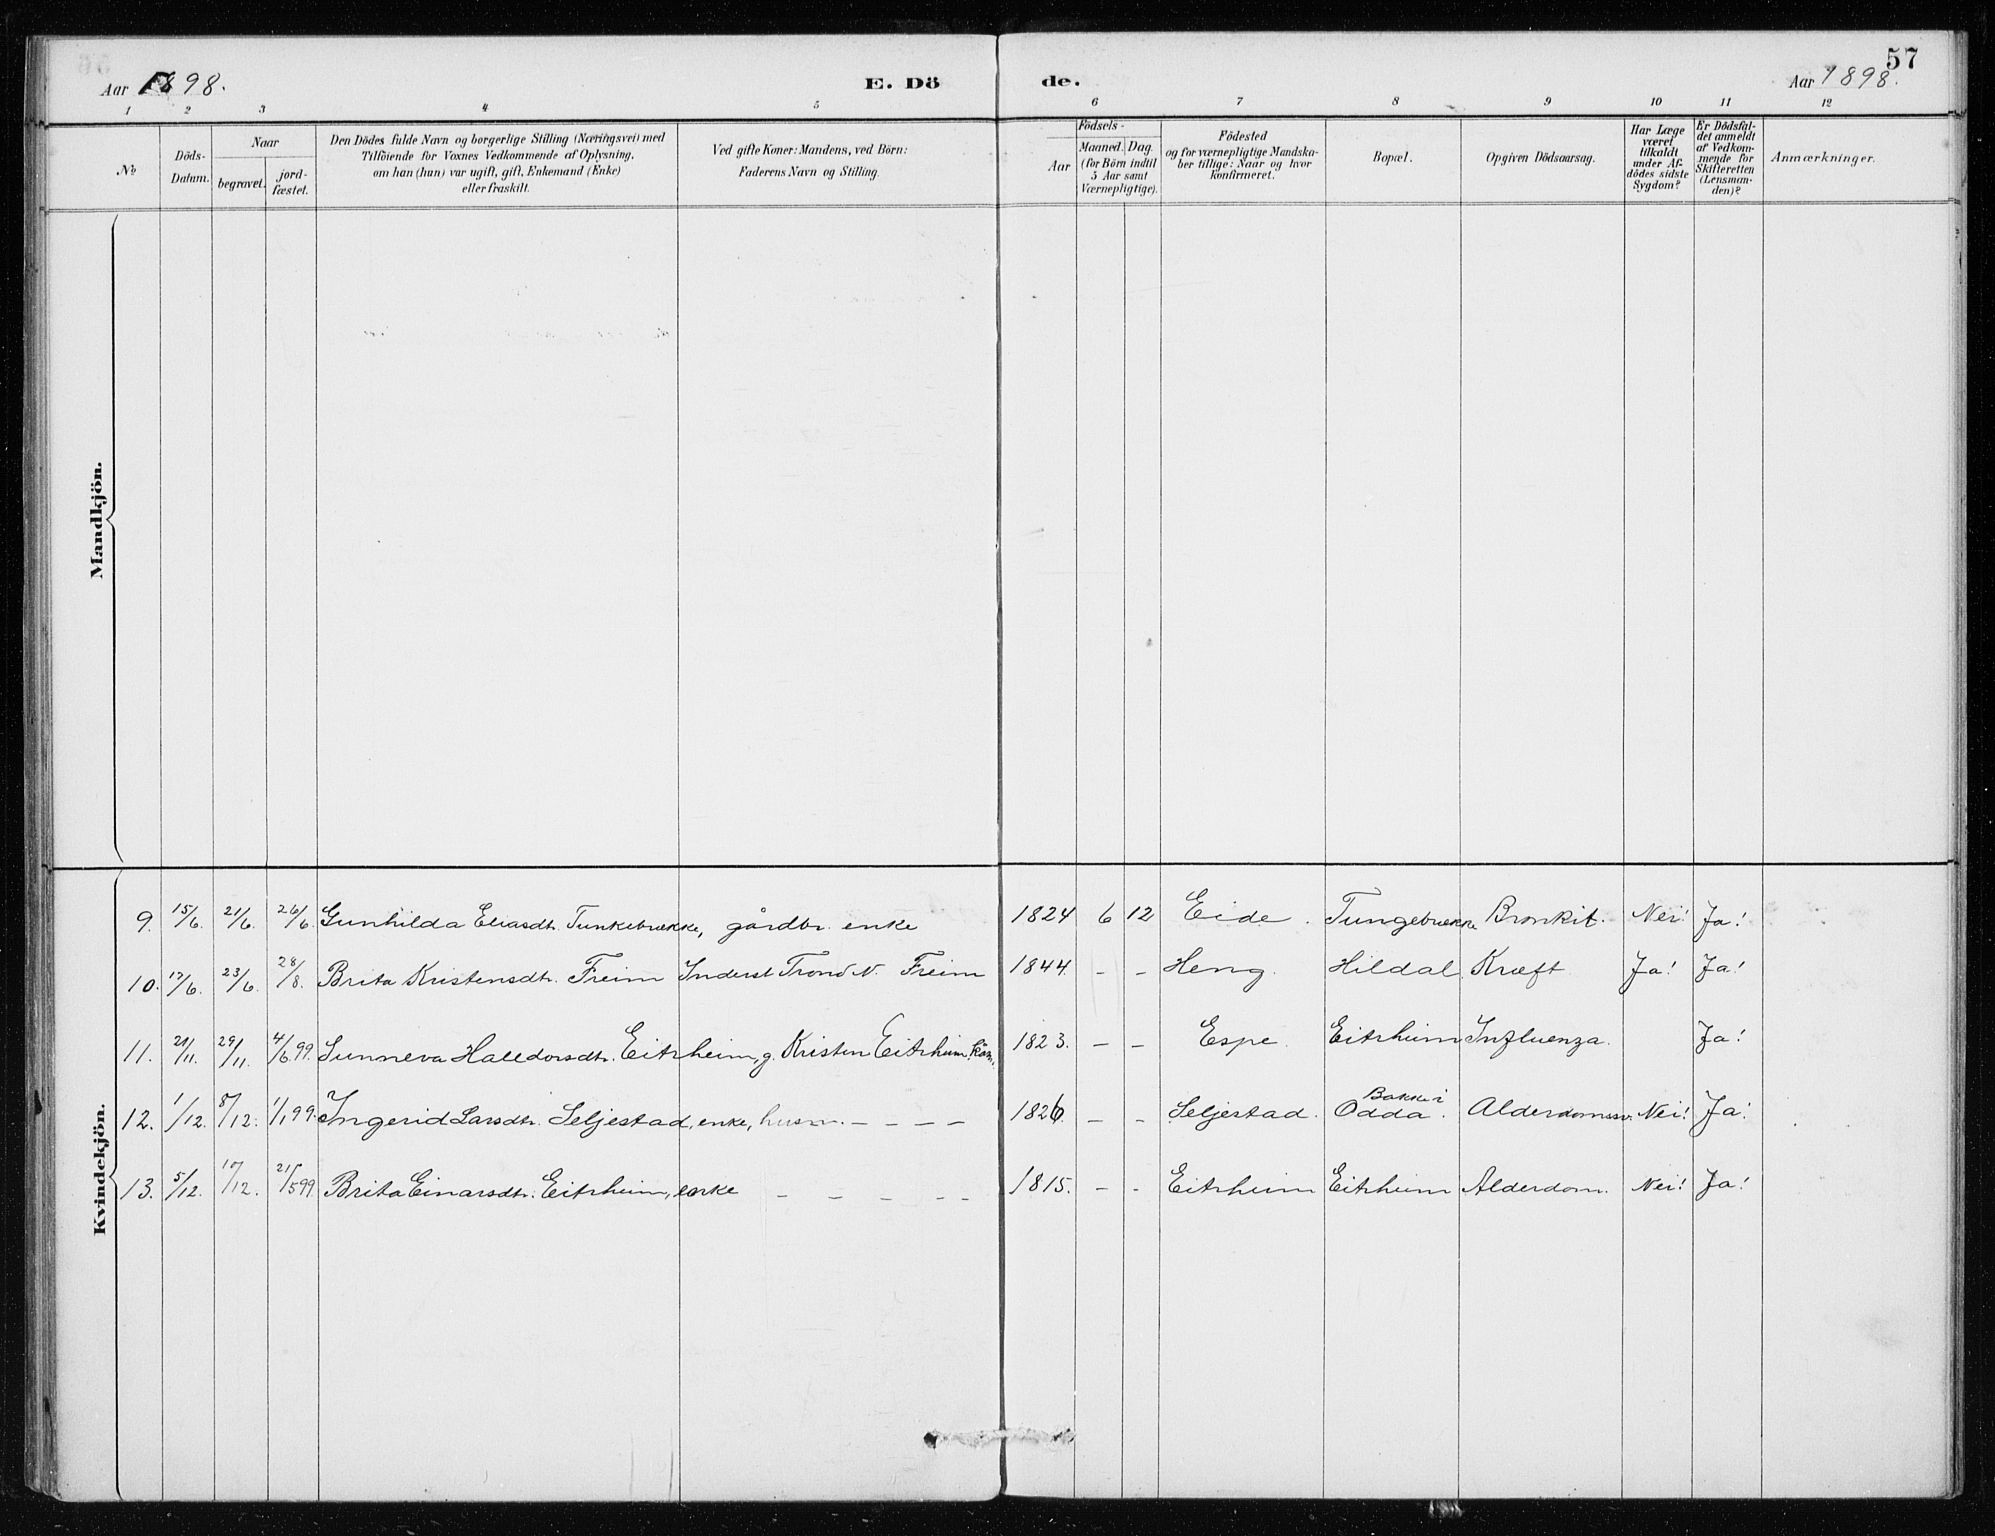 57
Aar 1898.
E. Dö
de.
Aar 1898.
1 2 3 4 5 6 7 8 9 10 11 12
No
Döds-Datum.
Naar
begravet.
jord-fæstet.
Den Dödes fulde Navn og borgerlige Stilling (Næringsvei) med
Tilföiende for Voxnes Vedkommende af Oplysning,
om han (hun) var ugift, gift, Enkemand (Enke)
eller fraskilt.
Ved gifte Koner: Mandens, ved Börn:
Faderens Navn og Stilling.
Födsels-
Aar
Maaned. Dag.
(for Börn indtil
5 Aar samt
Værnepligtige).
Födested
og for værnepligtige Mandska-
ber tillige: Naar og hvor
konfirmeret.
Bopæl.
Opgiven Dödsaarsag.
Har Læge
været
tilkaldt
under Af-
dödes sidste
Sygdom?
Er Dödsfal-
det anmeldt
af Vedkom-
mende for
Skifteretten
(Lensman-
den)?
Anmærkninger.
Mandkjön.
Kvindekjön.
9. 15/6. 21/6. 26/6. Gunhilda Eliasdtr. Tunkebrække, gårdbr. enke 1824 6 12 Eide. Tungebrække Bronkit. Nei! Ja!
10. 17/6. 23/6. 28/8. Brita Kristensdtr. Freim Inderst Trond N. Freim 1844. – – Heng. Hildal. Kræft Ja! Ja!
11. 21/11. 29/11. 4/6.99. Sunneva Halldorsdtr. Eitrheim, g. Kristen Eitrheim, 1823. – – Espe. Eitrheim Influenza. Ja!
12. 1/12. 8/12. 1/1.99. Ingerid Larsdtr. Seljestad, enke, husm. – – – – 1826. – – Seljestad. Bakke i Odda. Alderdomssv. Nei! Ja!
13. 5/12. 10/12. 21/5 99. Brita Einarsdtr. Eitrheim, enke – – – – – 1815. – – Eitrheim Eitrheim Alderdom. Nei! Ja!